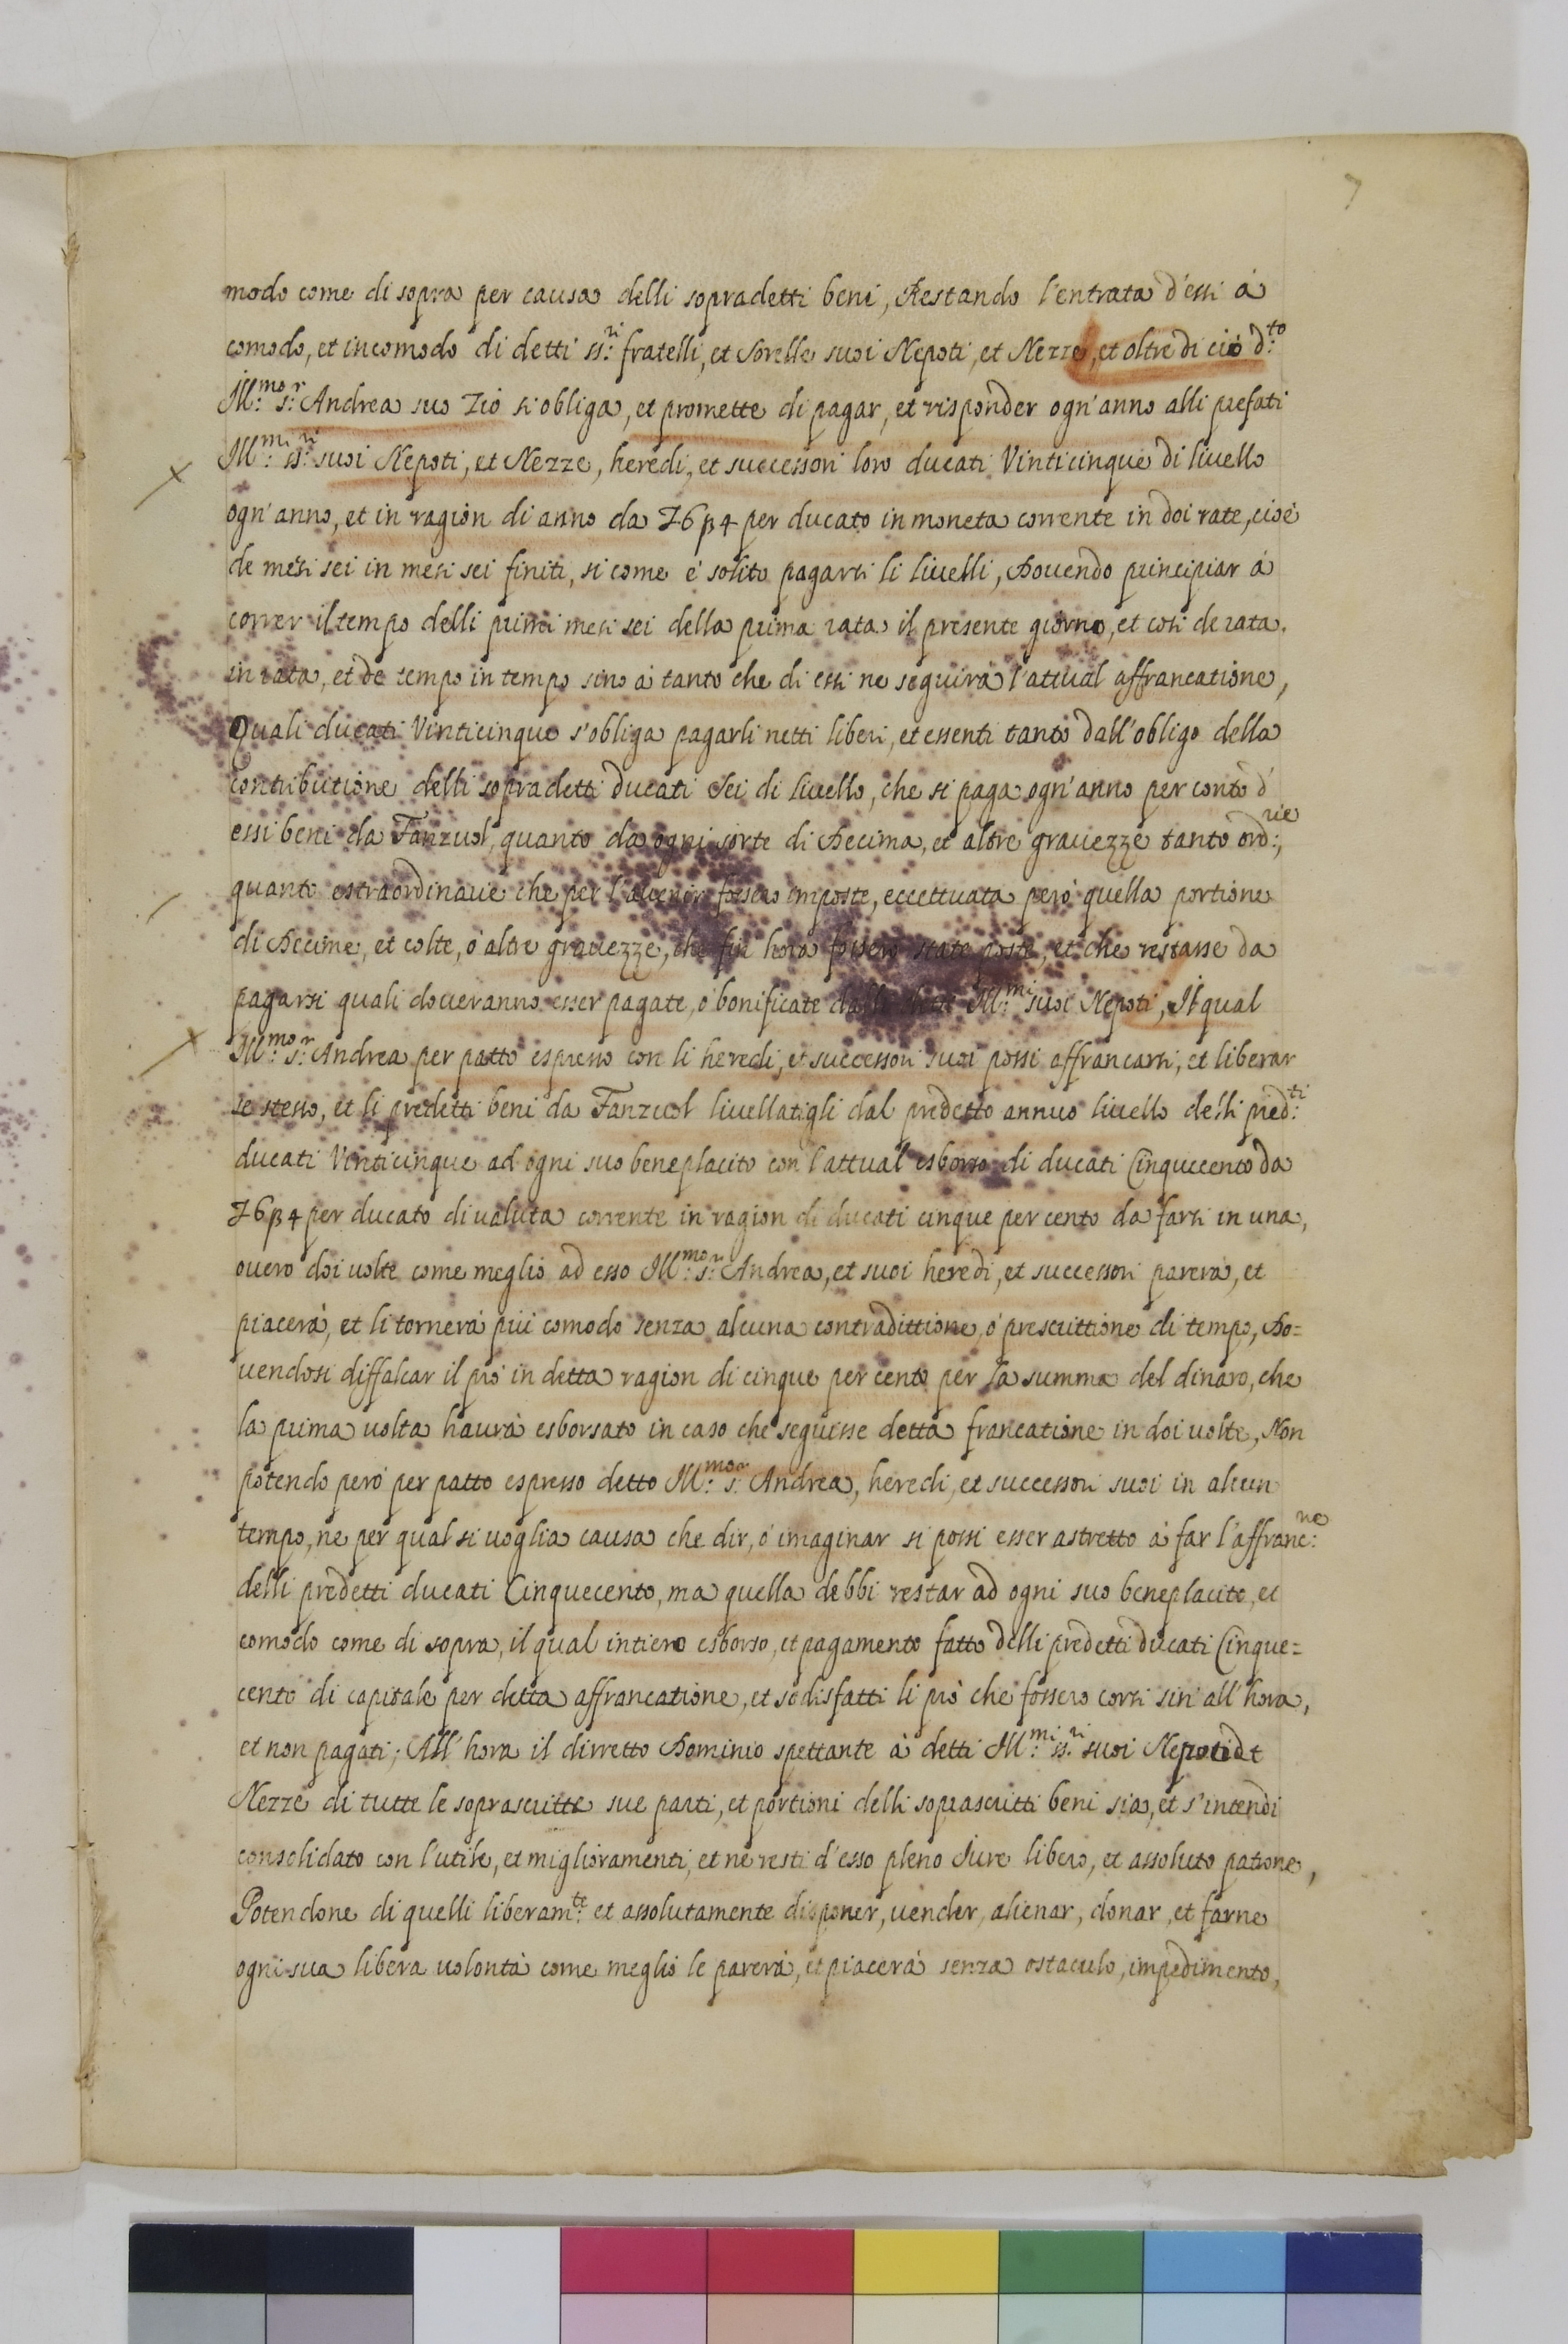 7
modo come di sopra per causa delli sopradetti beni, Restando l'entrata d'essi à
comodo, et incomodo di detti ss:ri fratelli, et Sorelle suoi Nepoti, et Nezze, et oltre di ciò d:to
Ill:mo s:r Andrea suo Zio si obliga, et promette di pagar, et risponder ogn'anno alli prefati
Ill:mi ss:ri suoi Nepoti, et Nezze, heredi, et successori loro ducati Vinticinque di livello
ogn'anno, et in ragion di anno da L6 ß4 per ducato in moneta corrente in doi rate, cioè
de mesi sei in mesi sei finiti, si come è solito pagarsi li livelli, Dovendo principiar à
correr il tempo delli primi mesi sei della prima rata il presente giorno, et cosi de rata
in rata, et de tempo in tempo sino à tanto che di essi ne seguirà l'attual affrancatione,
Quali ducati Vinticinque s'obliga pagarli netti liberi, et essenti tanto dall'obligo della
contributione delli sopradetti ducati sei di livello, che si paga ogn'anno per conto d'
essi beni da Fanzuol, quanto da ogni sorte di Decima, et altre gravezze tanto ord:rie,
quanto estraordinarie che per l'avenir fossero imposte, eccettuata però quella portione
di Decime, et colte, ò altre gravezze, che fin hora fossero state poste, et che restasse da
pagarsi quali doveranno esser pagate, ò bonificate Ill:mi suoi Nepoti, Il qual
Ill:mo s:r Andrea per patto espresso con li heredi, et successori suoi possi affrancarsi, et liberar
se stesso, et li predetti beni da Fanzuol livellatigli dal predetto annuo livello delli pred:ti
ducati Vinticinque ad ogni suo beneplacito con l'attual esborso di ducati Cinquecento da
L6 ß4 per ducato di valuta corrente in ragion di ducati cinque per cento da farsi in una,
overo doi volte come meglio ad esso Ill:mo s:r Andrea, et suoi heredi, et successori parerà, et
piacerà, et li tornerà più comodo senza alcuna contradittione, ò prescrittione di tempo, Do=
vendosi diffalcar il prò in detta ragion di cinque per cento per la summa del dinaro, che
la prima volta haverà esborsato in caso che seguisse detta francatione in doi volte, Non
potendo però per patto espresso detto Ill:mo s:r Andrea, heredi, et successori suoi in alcun
tempo, ne per qual si voglia causa che dir, ò imaginar si possi esser astretto à far l'affranc:ne
delli predetti ducati Cinquecento, ma quella debbi restar ad ogni suo beneplacito, et
comodo come di sopra, il qual intiero esborso, et pagamento fatto delli predetti ducati Cinque=
cento di capitale per detta affrancatione, et sodisfatti li prò che fossero corsi sin' all'hora,
et non pagati; All'hora il dirretto Dominio spettante à detti Ill:mi ss:ri suoi Nepoti et
Nezze di tutte le soprascritte sue parti, et portioni delli soprascritti beni sia, et s'intendi
consolidato con l'utile, et miglioramenti, et ne resti d'esso pleno Jure libero, et assoluto patrone,
Potendone di quelli liberam:te et assolutamente disponer, vender, alienar, donar, et farne
ogni sua libera volontà come meglio le parerà, et piacerà senza ostaculo, impedimento,